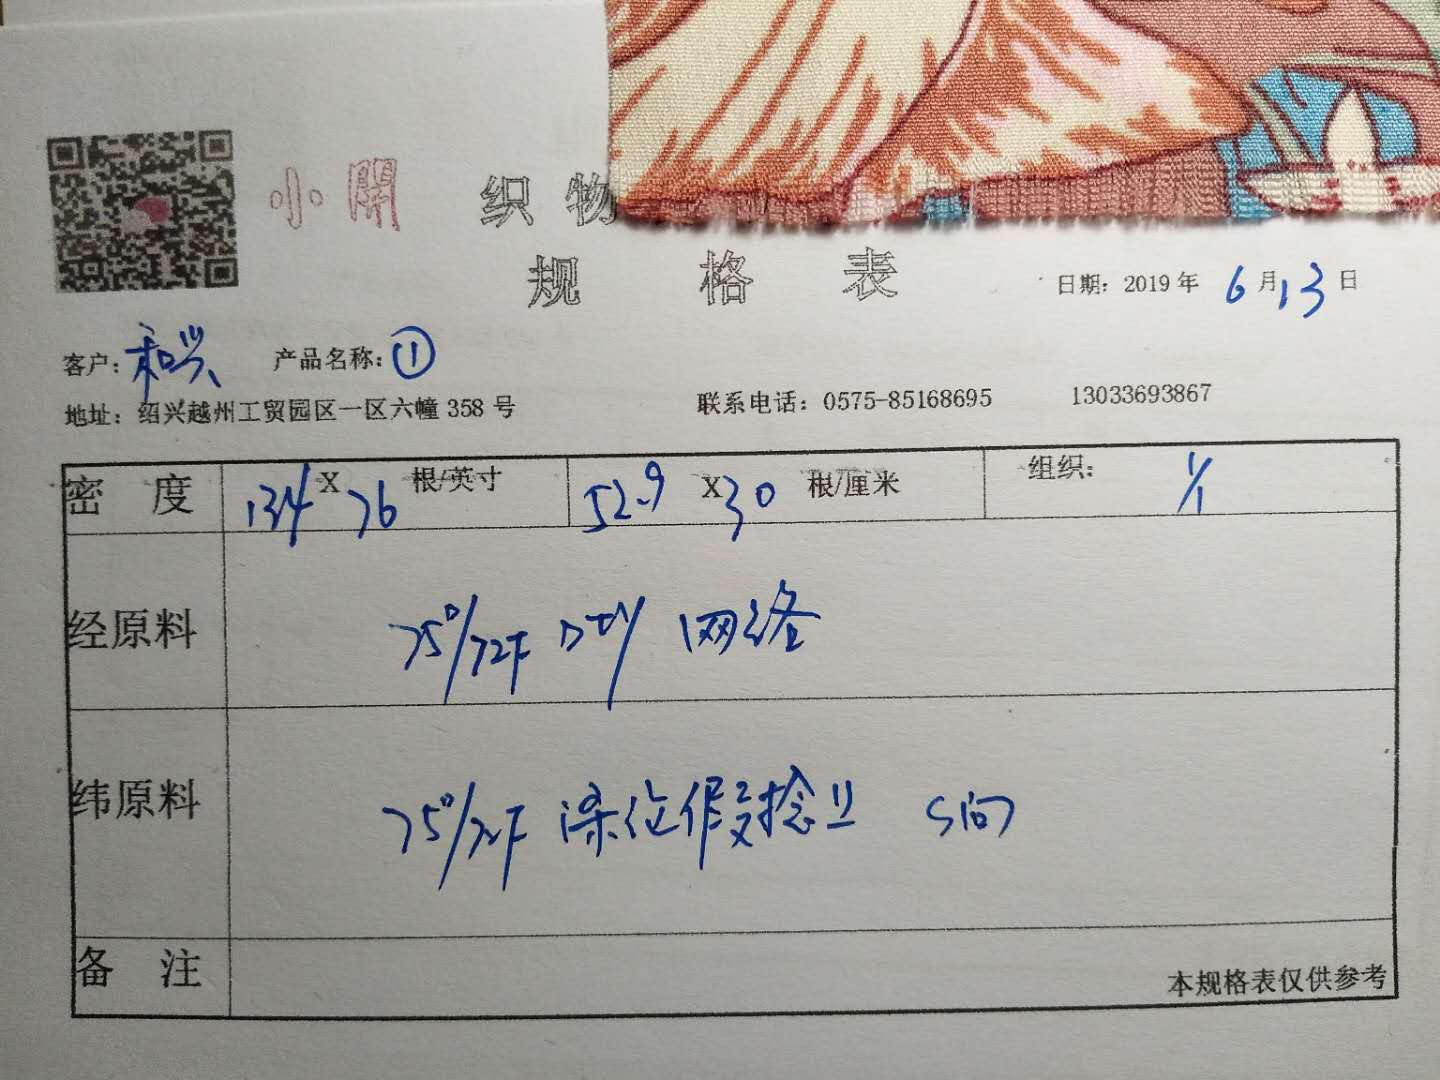 小開 织物
规格表
日期：2019年 6月13日
客户：和兴 产品名称：①
地址：绍兴越州工贸园区一区六幢358号 联系电话：0575-85168695 13033693867
密度 134X76 根/英寸 52.9X30 根/厘米 组织：1/1
经原料 75D/72F DTY 网络
纬原料 75D/72F 涤纶假捻 S向
备注 本规格表仅供参考